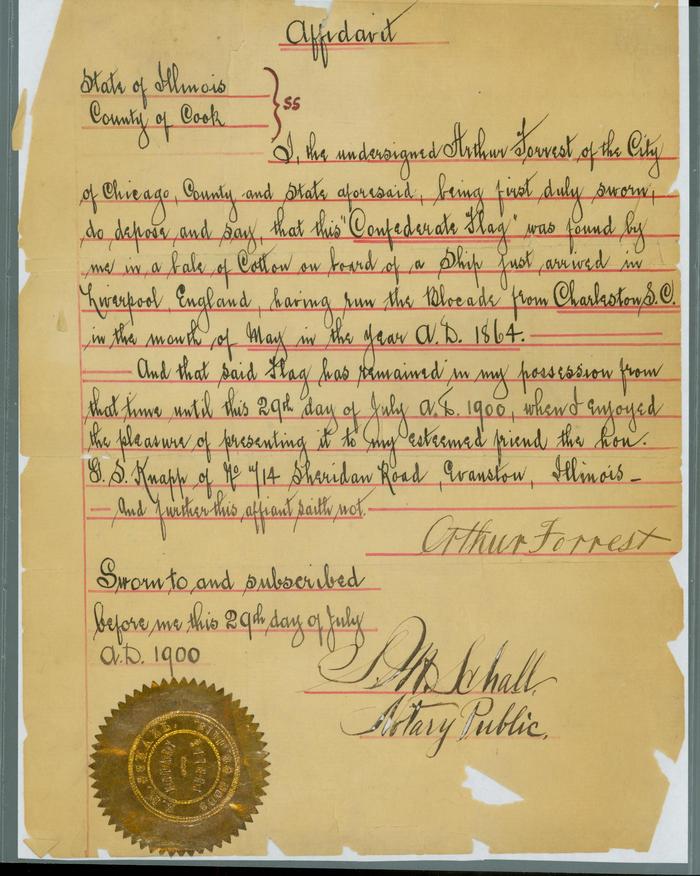 Affidavit
State of Illinois
County of Cook } SS
I, the undersigned Arthur Forrest of the City
of Chicago, County and State aforesaid, being first duly sworn,
do depose and say, that this "Confederate Flag" was found by
me in a bale of Cotton on board of a Ship just arrived in
Liverpool, England, having run the Blocade from Charleston S.C.
in the month of May in the year A.D. 1864.
And that said Flag has remained in my possession from
that time until this 29th day of July A.D. 1900, when I enjoyed
the pleasure of presenting it to my esteemed friend the hon.
G. S. Knapp of No 714 Sheridan Road, Evanston, Illinois —
And further this affiant saith not.
Arthur Forrest
Sworn to and subscribed
before me this 29th day of July
A.D. 1900
Schall,
Notary Public.
NOTARY